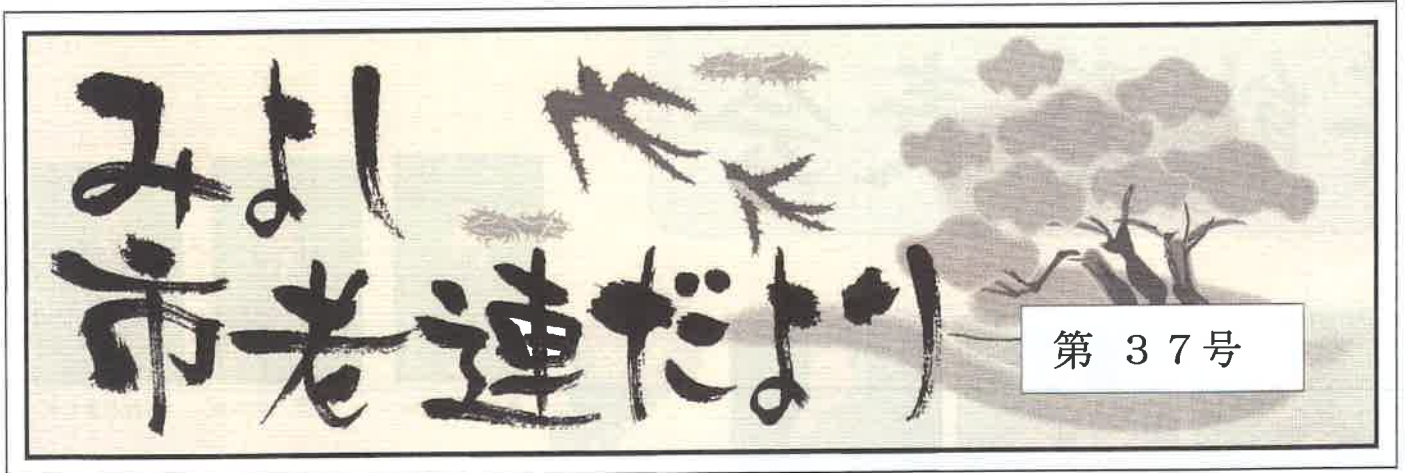 みよし
市老連だより
第 37号